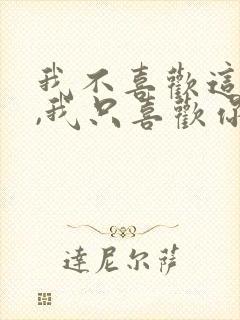 我不喜歡這
,我只喜歡你
達尼尔萨